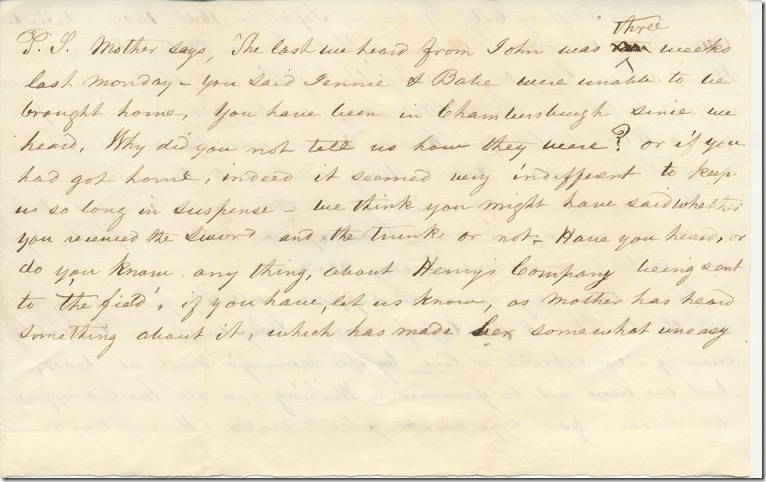 P.S. Mother says, The last we heard from John was three weeks
last Monday - you said Jennie & Babe were unable to be
brought home, you have been in Chambersburgh since we
heard, Why did you not tell us how they were? or if you
had got home, indeed it seemed very indifferent to keep
us so long in suspense - we think you might have said whether
you received the sword and the trunk or not. Have you heard, or
do you know any thing, about Henry's Company being sent
to 'the field', if you have, let us know, as Mother has heard
something about it, which has made her somewhat uneasy